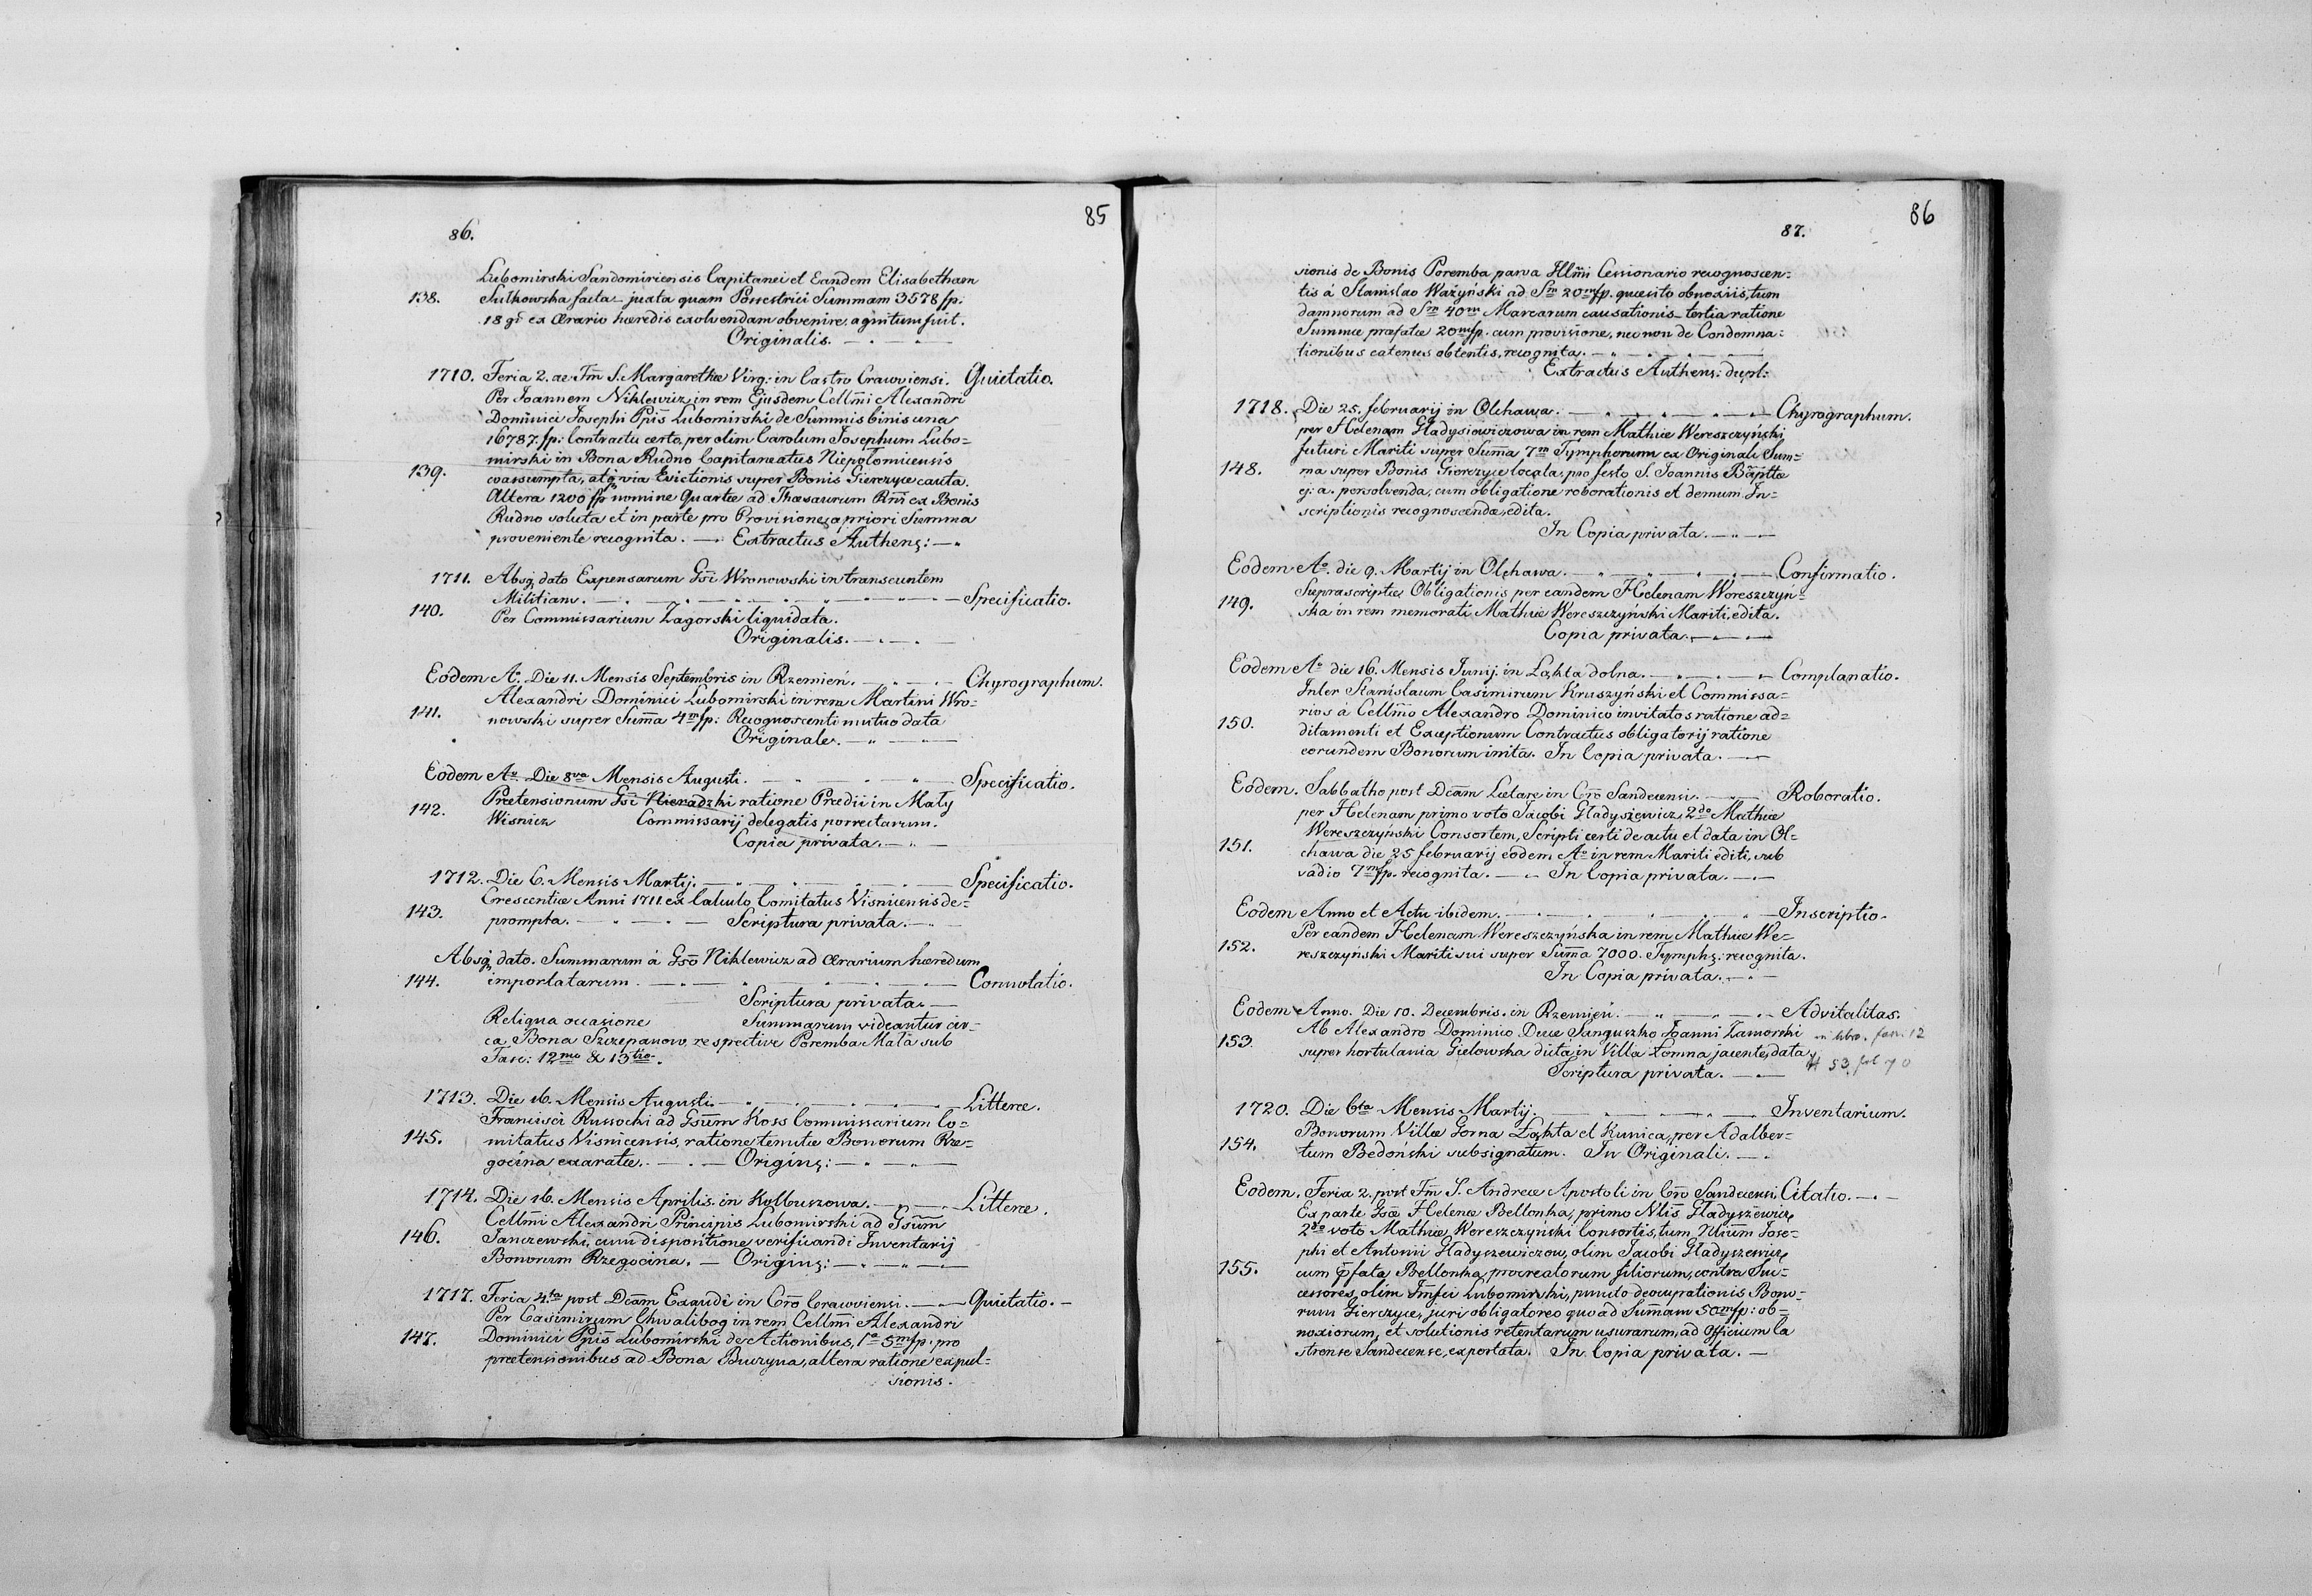 85
86.
Lubomirski Sandomiriensis Capitanei et Eandem Elisabetham
138. Sulkowska facta juxta quam Possestrici Summam 3578 fp.
18 gr. ex Ærario hæredis exolvendam obvenire, agnitum fuit.
Originalis.
1710. Feria 2. ae Fm̃ S. Margarethæ Virg: in Castro Cracoviensi. Quietatio.
Per Joannem Niklewicz in rem Ejusdem Cellm̃i Alexandri
Dominici Josephi Ppis Lubomirski de Summis binis una
16787. fp: Contractu certo, per olim Carolum Josephum Lubo=
mirski in Bona Rudno Capitaneatus Niepołomicensis
139. coassumpta, atq, via Evictionis super Bonis Gierczyce cauta.
Altera 1200 fp nomine Quartæ ad Thesaurum Rni ex Bonis
Rudno soluta et in parte pro Provisione, a priori Summa
proveniente recognita. — Extractus Authens: —
1711. Absq, dato Expensarum Gsi Wronowski in transeuntem
Militiam. Specificatio.
140. Per Commissarium Zagorski liquidata.
Originalis.
Eodem Ao. Die 11. Mensis Septembris in Rzemień. Chyrographum.
Alexandri Dominici Lubomirski in rem Martini Wro=
141. nowski super Sum̃a 4m fp: Recognoscenti mutuo data
Originale.
Eodem Ao. Die 8va Mensis Augusti. Specificatio.
Prætensionum Gsi Nieradzki ratione Prædii in Mały
142. Wisnicz Commissarij delegatis porrectarum.
Copia privata.
1712. Die 6. Mensis Martij. Specificatio.
Crescentiæ Anni 1711 ex Calculo Comitatus Visnicensis de=
143. prompta. Scriptura privata.
Absq, dato. Summarum á Gsõ Niklewicz ad Ærarium hæredum
144. importatarum. Connotatio.
Scriptura privata.
Reliqua occasione Summarum videantur cir=
ca Bona Szczepanow, respective Poremba Mała sub
Fasc: 12mo & 13tio.
1713. Die 16. Mensis Augusti. Litteræ.
Francisci Russocki ad Gsum̃ Koss Commissarium Co=
145. mitatus Visnicensis, ratione tenutæ Bonorum Rze=
gocina exaratæ. Origins:
1714. Die 16. Mensis Aprilis in Kolbuszowa. Litteræ.
Cellm̃i Alexandri Principis Lubomirski ad Gsum̃
146. Janczewski, cum dispositione verificandi Inventarij
Bonorum Rzegocina. — Origins:
1717. Feria 4ta post Dcam̃ Exaudi in Cro Cracoviensi. Quietatio.
Per Casimirum Chwalibog in rem Cellm̃i Alexandri
147. Dominici Ppis Lubomirski de Actionibus, 1a 5m fp. pro
prætensionibus ad Bona Buczyna, altera ratione expul=
sionis.
86
87.
sionis de Bonis Poremba parva Illm̃i Cessionario recognoscen=
tis á Stanislao Ważyński ad Sm 20m fp. quæsito obnoxiis, tum
damnorum ad Sm 40m Marcarum causationis tertia ratione
Summæ præfatæ 20m fp. cum provisione, nec non de Condemna=
tionibus eatenus obtentis, recognita.
Extractus Authens: dupl:
1718. Die 25. februarij in Olchawa. Chyrographum.
per Helenam Gładysiewiczowa in rem Mathiæ Wereszczyński
futuri Mariti super Sum̃a 7m Tymphorum ex Originali Sum=
148. ma super Bonis Gierczyce locata, pro festo S. Joannis Baptæ
ej: a. persolvenda, cum obligatione roborationis et demum In=
scriptionis recognoscendæ, edita.
In Copia privata.
Eodem Ao. die 9. Martij in Olchawa. Confirmatio.
Suprascriptæ Obligationis per eandem Helenam Wereszczyń=
149. ska in rem memorati Mathiæ Wereszczyński Mariti, edita.
Copia privata.
Eodem Ao die 16. Mensis Junij. in Łąkta dolna. Complanatio.
Inter Stanislaum Casimirum Kruszyński et Commissa=
rios á Cellm̃o Alexandro Dominico invitatos ratione ad=
150. ditamenti et Exceptionum Contractus obligatorij ratione
eorundem Bonorum inita. In Copia privata.
Eodem. Sabbatho post Dcam̃ Lætare in Cro Sandecensi. Roboratio.
per Helenam primo voto Jacobi Gładyszewicz, 2do Mathiæ
Wereszczyński Consortem, Scripti certi de actu et data in Ol=
151. chawa die 25 februarij eodem Ao in rem Mariti editi, sub
vadio 7m fp. recognita. In Copia privata.
Eodem Anno et Actu ibidem. Inscriptio.
Per eandem Helenam Wereszczyńska in rem Mathiæ We=
152. reszczyński Mariti sui super Sum̃a 7000. Tymphs: recognita.
In Copia privata.
Eodem Anno. Die 10. Decembris in Rzemień. Advitalitas.
Ab Alexandro Dominico Duce Sanguszko Joanni Zamorski in libro. fasc. 12
153. super hortulania Gielowska dicta, in Villa Łomna jacente, data
Scriptura privata. 53 fol 70
1720. Die 6ta Mensis Martij. Inventarium.
Bonorum Villæ Gorna Łąkta et Kunica, per Adalber=
154. tum Bedoński subsignatum. In Originali.
Eodem. Feria 2. post Fm̃ S. Andreæ Apostoli in Cro Sandecensi Citatio.
Ex parte Gsæ Helenæ Bellonka, primo Nlis Gładyszewicz,
2do voto Mathiæ Wereszczyński Consortis, tum Nlium̃ Jose=
phi et Antonii Gładyszewiczow, olim Jacobi Gładyszewicz,
155. cum pfata Bellonka, procreatorum filiorum, contra Suc=
cessores olim Im̃sci Lubomirski, puncto deoccupationis Bono=
rum Gierczyce, juri obligatoreo quo ad Sum̃am 50m fp: ob=
noxiorum, et solutionis retentarum usurarum, ad Officium Ca
strense Sandecense, exportata. In Copia privata.